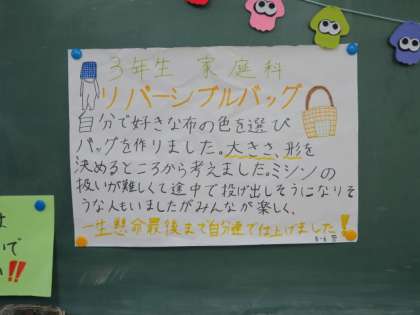 3年生 家庭科
リバーシブルバッグ
自分で好きな布の色を選び
バッグを作りました。大きさ、形を
決めるところから考えました。ミシンの
扱いが難しくて途中で投げ出しそうになりそ
うな人もいましたがみんなが楽しく、
一生懸命最後まで自分達で仕上げました!
は
いで
い!!